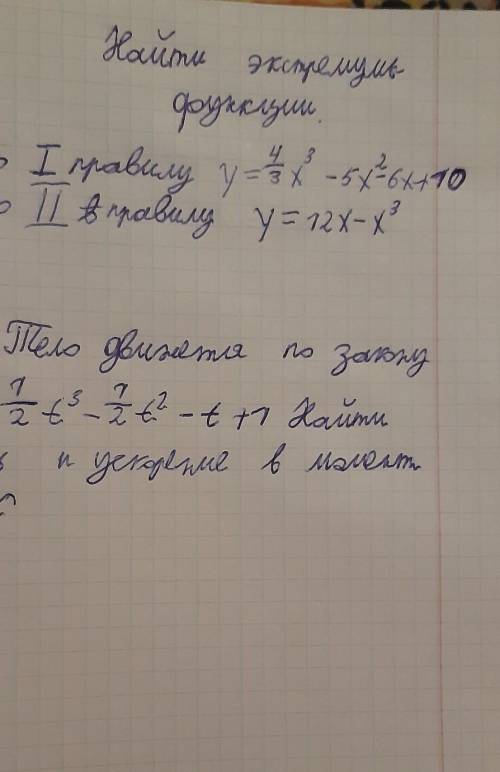 Найти экстремумы
функции.
I правилу y = 4/3 x³ - 5x² - 6x + 10
II правилу y = 12x - x³
Тело движется по закону
1/2 t³ - 1/2 t² - t + 1 Найти
и ускорение в момент